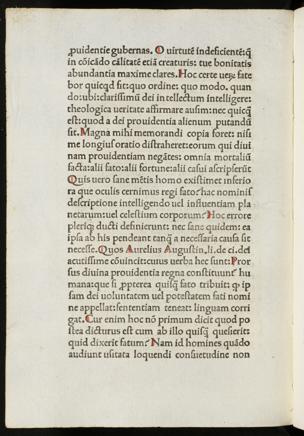 ꝓuidentie gubernas. O uirtutẽ indeficientẽ: q̃
in cõicãdo cãlitatẽ etiã creaturis: tue bonitatis
abundantia maxime clares. Hoc certe ueꝝ fate
bor quicqd sit: quo ordine: quo modo. quan
do: ubi: clarissimũ dei in tellectum intelligere:
theologica ueritate affirmare ausim: nec quicq̃
est: quod a dei prouidentia alienum putandũ
sit. Magna mihi memorandi copia foret: nisi
me longius oratio distraheret: eorum qui diui
nam prouidentiam negãtes: omnia mortaliũ
facta: alii fato: alii fortune: alii casui ascripserũt
Quis uero sane mẽtis homo existimet inferio
ra que oculis cernimus regi fato: hac nominis
descriptione intelligendo uel influentiam pla
netarum: uel celestium corporum? Hoc errore
pleriq; ducti definierunt: nec sane quidem: ea
ipsa ab his pendeant tanq̃ a necessaria causa sit
necesse. Quos Aurelius Augustin, li. de ci. dei
acutissime cõuincit: cuius uerba hec sunt: Pror
sus diuina prouidentia regna constituunt̃ hu
mana: que si ꝓpterea quisq̃ fato tribuit: q ip
sam dei uoluntatem uel potestatem fati nomi
ne appellat: sententiam teneat: linguam corri
gat. Cur enim hoc nõ primum dicit quod po
stea dicturus est cum ab illo quisq̃ quesierit:
quid dixerit fatum? Nam id homines quãdo
audiunt usitata loquendi consuetudine non